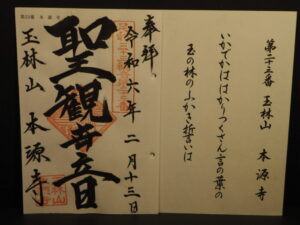 第二十三番 玉林山 本源寺
いかでかははかりつくさん言の葉の
玉の林のふかき誓いは
奉拝
令和六年二月十三日
聖観世音
玉林山 本源寺